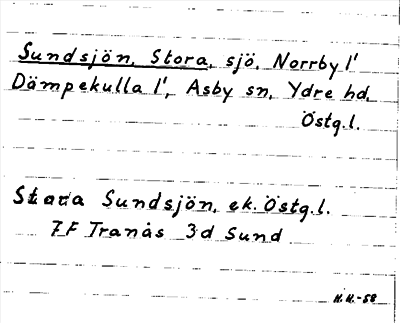 Sundsjön, Stora, sjö, Norrby l'
Dämpekulla l', Asby sn, Ydre hd,
Östg.l.
Stora Sundsjön, ek. Östg.l.
7F Tranås 3d Sund
H.H.-58